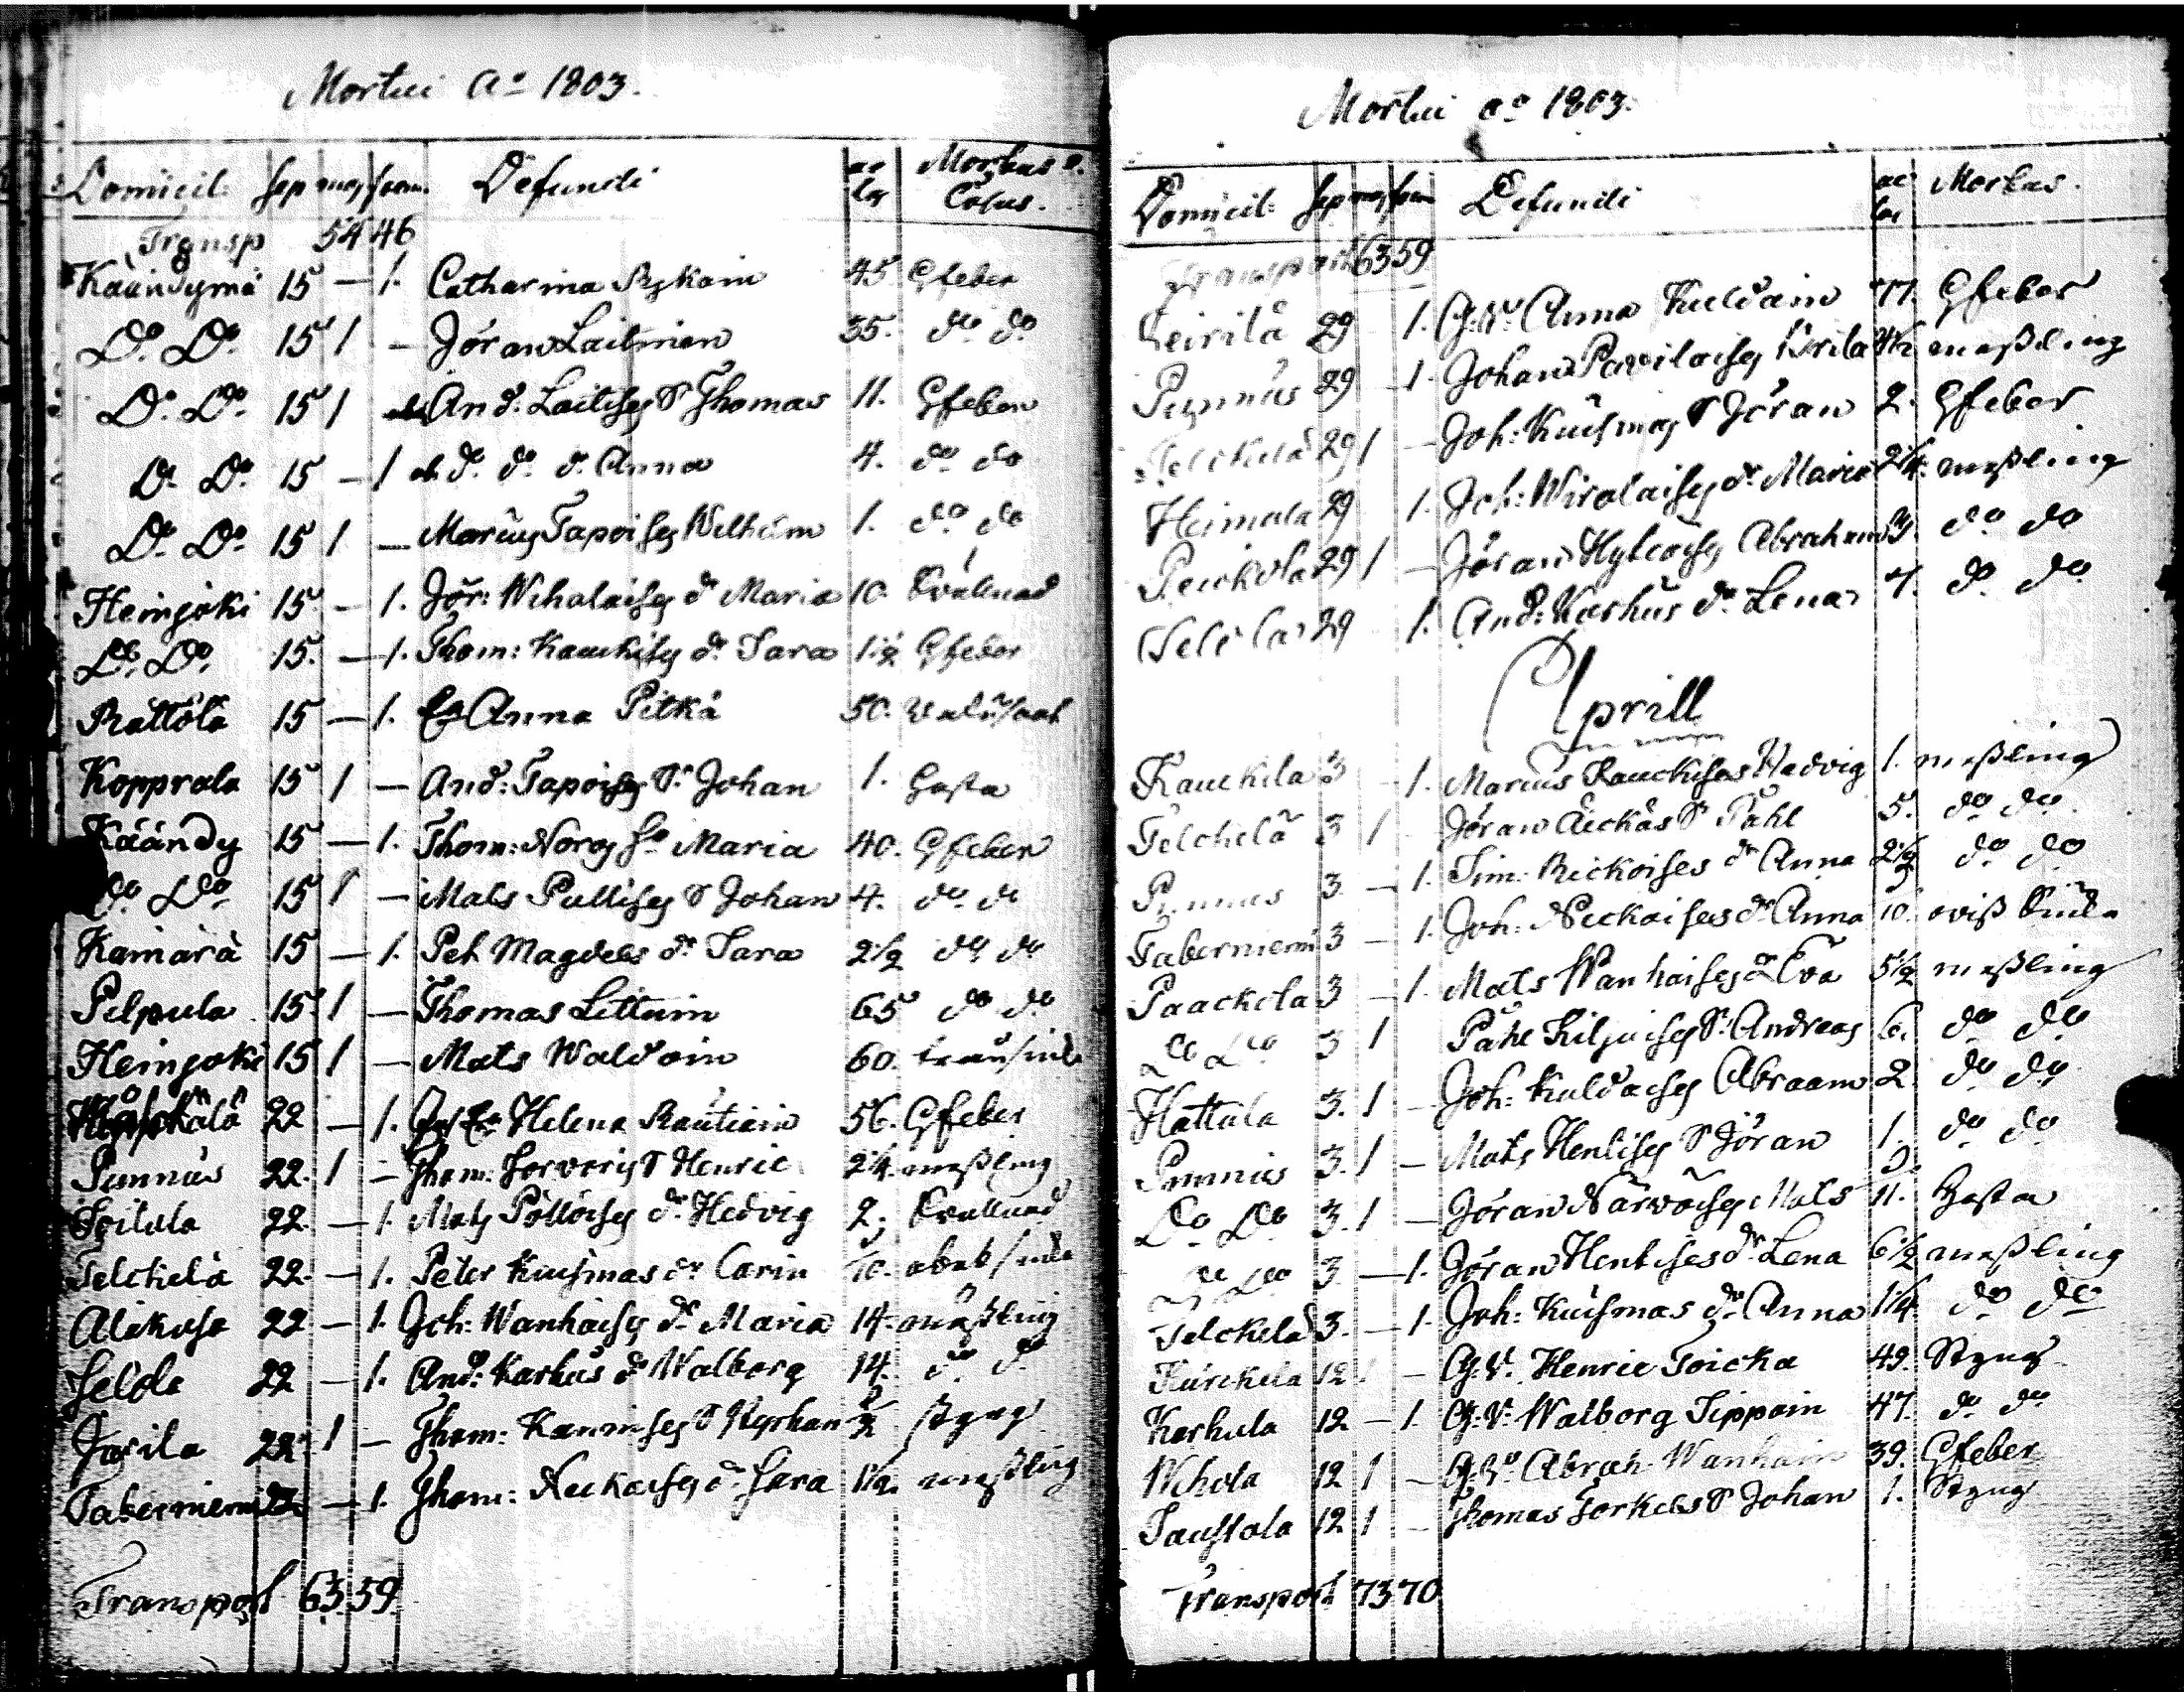 Mortui Aº 1803.
Domicil: sep mas foem. Defuncti ae tas Morbus e. Casus.
Transp 54 46
Käändymä 15 — 1. Catharina Rykäin 45 Gfeber
Dº Dº 15 1 — Jöran Laitinen 35. dº dº
Dº Dº 15 1 — And: Laitises S Thomas 11. Gfeber
Dº Dº 15 — 1 dº dº dr Anna 4. dº do
Dº Dº 15 1 — Marcus Tapoises Wilhelm 1. dº do
Heinjoki 15 — 1. Jör: Wihalaises dr Maria 10. Qvälnad
Dº Dº 15. — 1. Thom: Kauckises dr Sara 1 1/2 Gfeber
Rättölä 15 — 1. Ea Anna Pitkä 50.
Kopprala 15 1 — And: Tapoises Sn Johan 1. Hosta
Käändy 15 — 1. Thom: Noros Ha Maria 40. Gfeber
Dº Dº 15 1 — Mats Pullises S Johan 4. dº do
Kämärä 15 — 1. Pet Magdels dr Sara 2 1/2 dº do
Pilpula 15. 1 — Thomas Littuin 65 dº do
Heinjoki 15 1 — Mats Waldoin 60.
22 — 1. Helena Rautiain 56. Gfeber
Punnus 22. 1 — Thom: Torveris S Henric 2 1/4. mäßling
Toitula 22. — 1. Mats Pöllöises dr Hedvig 2. Qvälnad
Telckelä 22. — 1. Peter Kuismas dr Carin 70.
Alakusa 22 — 1. Joh: Wanhaises dr Maria 14. mäßling
Selda 22 — 1. And: Karhus dr Walborg 14. dº dº
Jorila 22. 1 — Thom: Kannises S Stephan Styng
Taberniemi 22 — 1. Thom: Neckaises dr Sara 1 1/2. mäßling
Transport 63 59
Mortui aº 1803.
Domicil: sep mas foem Defuncti ae tas Morbus.
Transport 63 59
Leirilä 29 1. G:V: Anna Kuldain 77. Gfeber
Punnus 29 — 1. Johan Pavilaises Ukrila mäßling
Telckelä 29 1 — Joh: Kuismas S Jöran 2. Gfeber
Heimala 29 1. Joh: Wirolaises dr Maria 2 1/4. mäßling
Peickola 29 1 — Jöran Hyteöises Abraham 3. dº do
Selila 29 1. And: Karhus dr Lena 7. dº do
Aprill
Kauckila 3 — 1. Marcus Kauckises Hedvig 1. mäßling
Telckelä 3 1 Jöran Äickäs S Påhl 5. dº do
Punnus 3 — 1. Sim: Rickoises dr Anna 2 1/2 dº do
Taberniemi 3 — 1. Joh: Neckaises dr Anna 10.
Paackola 3 — 1. Mats Wanhaises dr Eva 5 1/2 mäßling
Dº Dº 3 1 Påhl Kiljuises Sn Andreas 6. dº do
Hattula 3. 1 — Joh: Kuldaises Abraam 2. dº do
Punnus 3. 1 — Mats Hentises S Jöran 1. dº do
Dº Dº 3. 1 — Jöran Närwäises Mats 11. Hosta
Dº Dº 3 — 1. Jöran Hentises dr Lena 6 1/2 mäßling
Telckelä 3. — 1. Joh: Kuismas dr Anna 1 1/4. dº do
Kurckela 12 1 — G:V. Henric Toicka 49. Styng
Karhula 12 — 1. G:V: Walborg Sippoin 47. dº do
Wihola 12 1 — G:V: Abrah Wanhain 39. Gfeber
Taustala 12 1 — Thomas Torkels S Johan 1. Styng
Transport 73 70